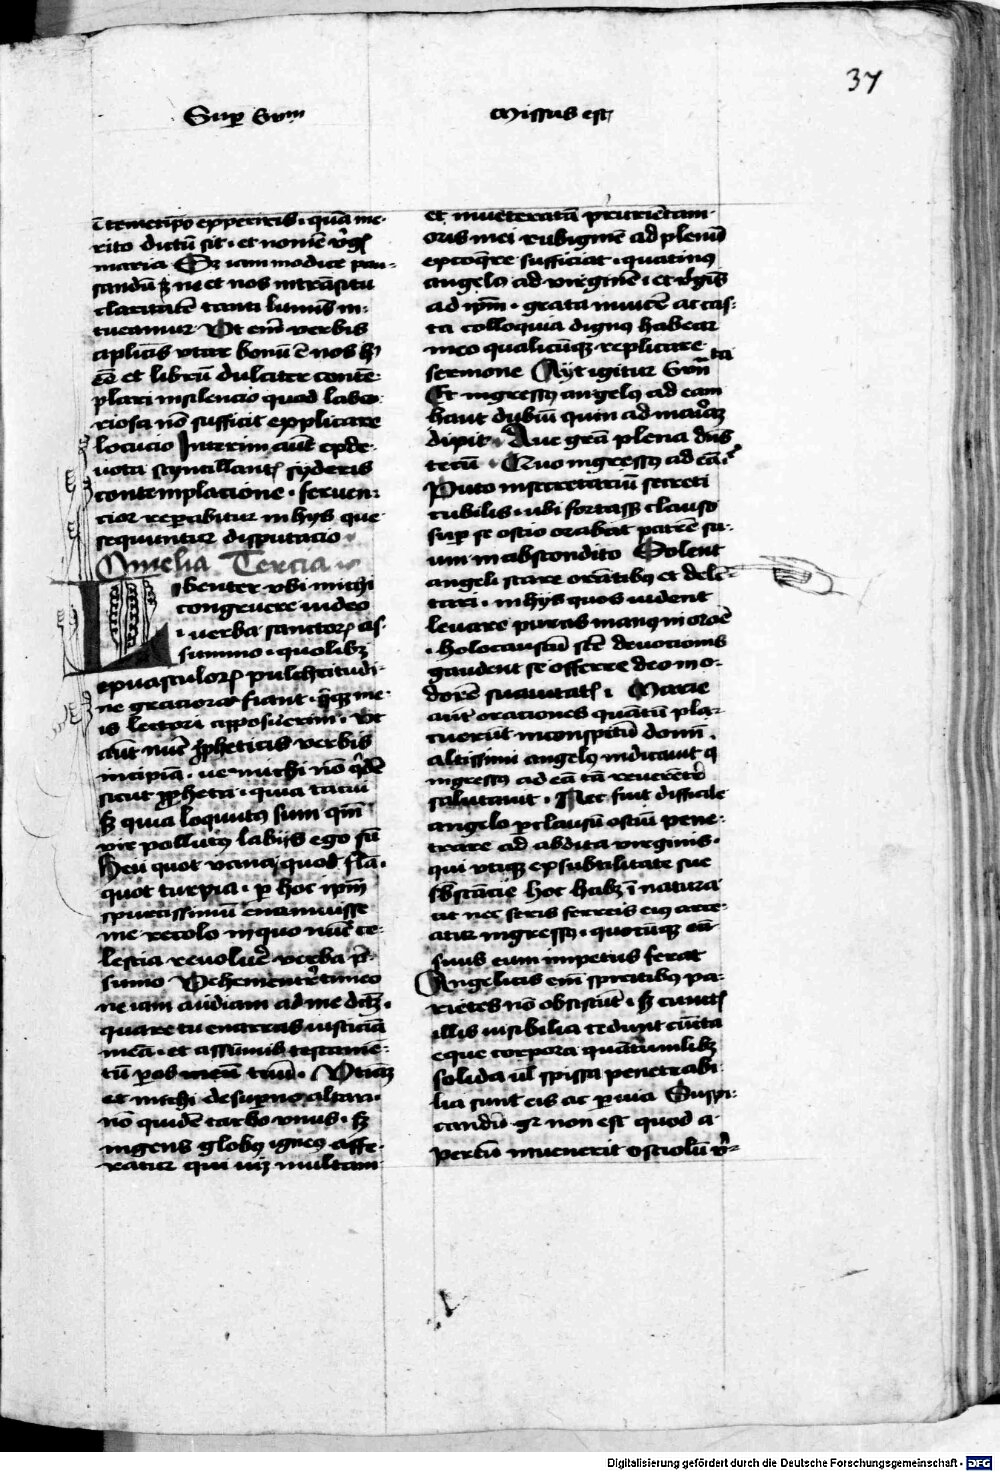 37
Sup Ewm
Missus est
i temetipo experiris · quā me-
rito dictū sit · et nomē v̓gīs
maria Sꝫ iam modice pau-
sandū ꝫ ne et nos intrāsitu
claritatē tanti luminis in-
tueamur Vt em̄ verbis
aplicis vtar bonū ē nos h̓
eē et librū dulciter contē-
plari in silencio quod labo-
riosa nō sufficit explicare
locucio Interim aut ex de-
uota scyntillantis syderis
contemplacione · feruen-
cior reparabitur in hys que
sequuntur disputacio
Omelia Tercia
Libenter vbi michi
congruere video
verba sanctorꝫ as-
summo · quo libꝫ
ex vasculorꝫ pulchritudi-
ne graciora fiant · q̄qꝫ me-
is lectori apposuerim · Vt
aut nūc ꝓpheticis verbis
incipiā · ue michi nō q̓dē
sicut ꝓpheta · quia tacui
sꝫ quia loquutꝰ sum qm̄
vir pollutꝰ labijs ego sū
Heu quot vana quod fl̄a ·
quot turpia · p hoc ipm̄
spurcissimū euomuisse
me recolo in quo nūc ce-
lestia reuoluē verba p̓-
sumo Vehementer timeo
ne iam audiam ad me dictū ·
quare tu enarras iusticiā
meā · et assumis testamē-
tū p os meū tuū · Vtinā
et michi de supno altari ·
nō quidē carbo vnus · sꝫ
ingens globꝰ igneꝰ affe-
ratur qui uiꝫ multam
et inueteratā prurientam
oris mei rubiginē ad plenū
excoq̄re sufficiat · quatinꝰ
angeli ad virginē · et v̓gīs
ad ipm̄ · grata inuicē ac cas-
ta colloquia dignꝰ habear
meo qualicūqꝫ replicare
sermone Ayt igitur Ewn̄ta
Et ingressꝰ angelꝰ ad eam
haut dubiū quin ad mariā
dixit · Aue grā plena dn̄s
tecū · Quo ingressꝰ ad eā ·
Puto in secretariū secreti
cubilis · ubi fortassꝫ clauso
sup se ostio orabat patrē su-
um in abscondito Solent
angeli stare orātibꝰ et delē-
tari · in hys quos vident
leuare puras manꝰ in oroē
· holocaustū stē deuocionis
gaudent se offerre deo in o-
dorē suauitatꝫ · Marie
aut oraciones quātū pla-
cuerūt in conspectu domi ·
altissimi angelꝰ indicauit q
ingressꝰ ad eā tā reuerēt̓
salutauit · Nec fuit difficile
angelo p clausū ostiū pene-
trare ad abdita virginis ·
qui vtiqꝫ ex subtilitate sue
sbstācie hoc habꝫ ī natura
ut nec seris ferreis eiꝰ arce-
atur ingressꝰ · quocūqꝫ eū
suus eum impetus ferat
Angelicis em̄ spiritibꝰ pa-
rietes nō obsistūt · sꝫ cunctꝫ
illis visibilia cedunt cūcta
eque corpora quātumlibꝫ
solida ul spissa penetrabi
lia sunt eis ac p via Suspi-
candū gꝛ non est quod a-
pertū inuenerit ostiolū v̓-
Digitalisierung gefördert durch die Deutsche Forschungsgemeinschaft · DFG